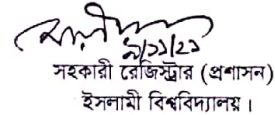 ৯/১১/২১
সহকারী রেজিস্ট্রার (প্রশাসন)
ইসলামী বিশ্ববিদ্যালয়।